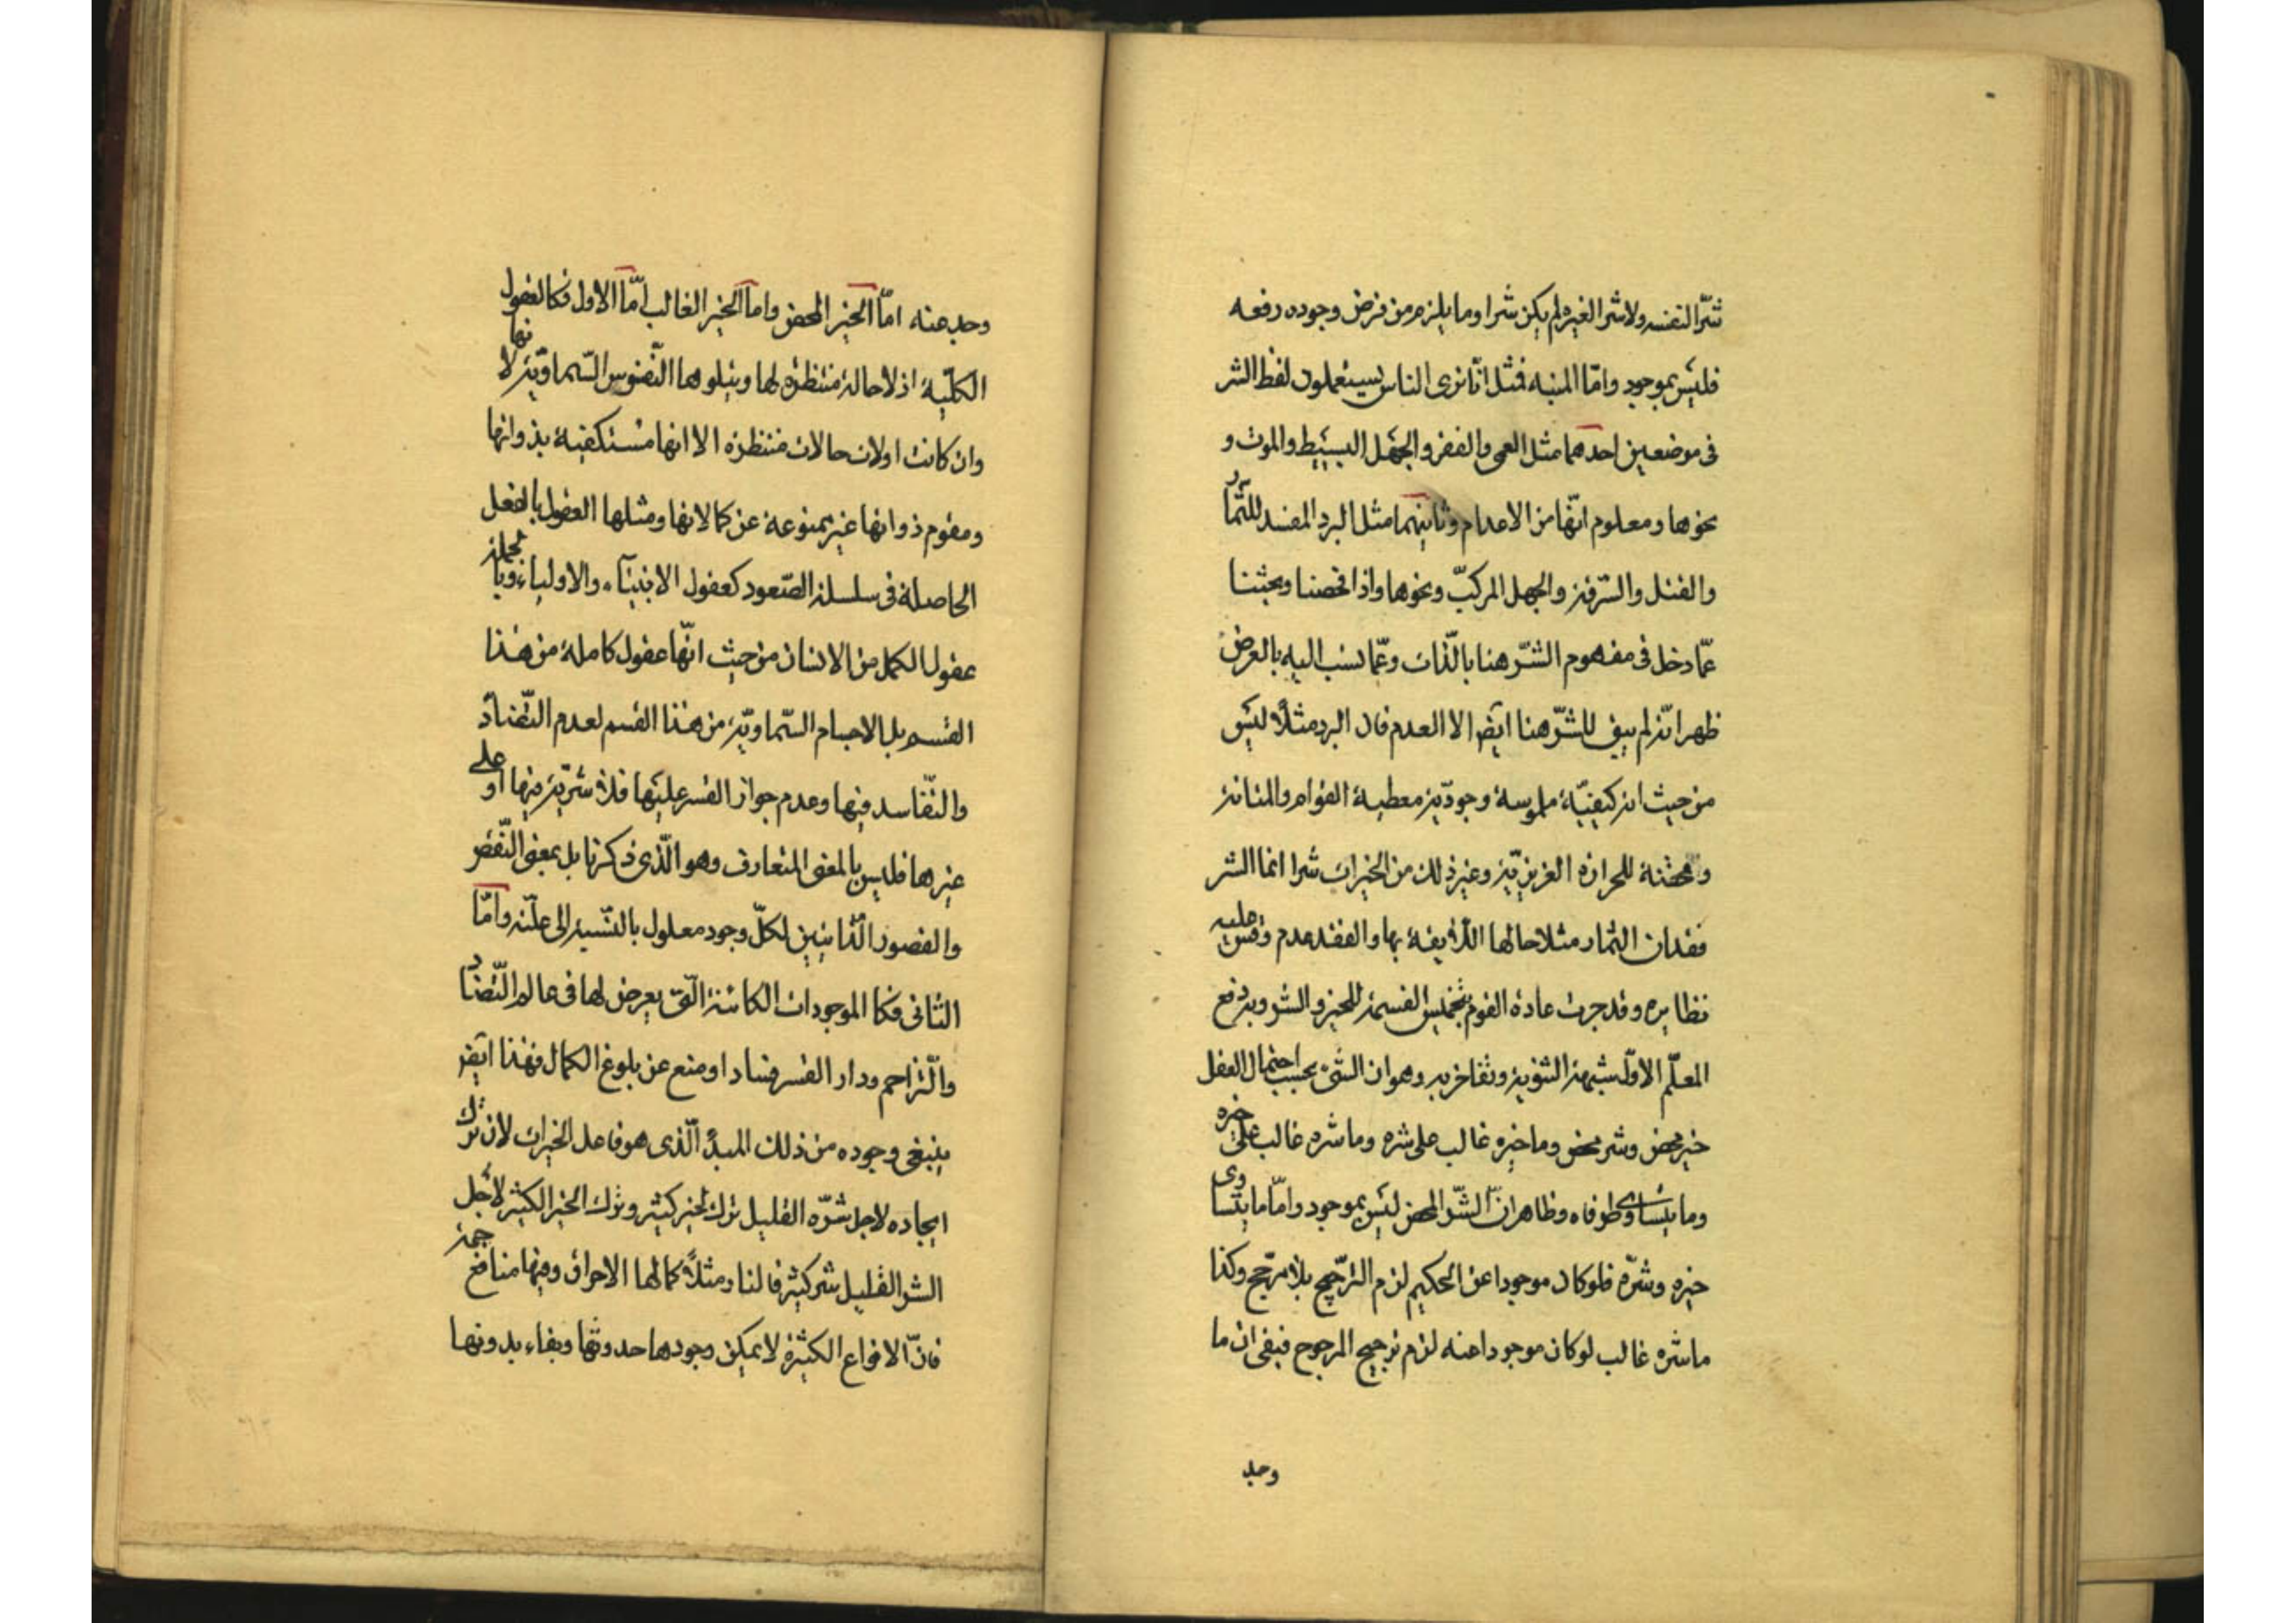 شرّا لنفسه ولا شرا لغيره لم يكن شرا وما يلزم من فرض وجوده رفعه
فليس بموجود وامّا المنبه فمثل انّا نرى الناس يستعملون لفظ الشر
فى موضعين احدهما مثل العمى والفقر والجهل البسيط والموت و
نحوها ومعلوم انّها من الاعدام وثانيهما مثل البرد المفسد للثّمار
والقتل والسّرقة والجهل المركبّ ونحوها واذا فحصنا وبحثنا
عمّا دخل فى مفهوم الشرّ هنا بالذّات وعمّا نسب اليه بالعرض
ظهر انّه لم يبق للشرّ هنا ايضا الا العدم فان البرد مثلاً ليس
من حيث انه كيفيّة ملموسة وجوديّة معطية القوام والمتانة
ومحقنة للحرارة الغريزيّة وغير ذلك من الخيرات شرا انما الشر
فقدان الثمار مثلا حالها اللّايقة بها والفقد عدم وقس عليه
نظايره وقد جرت عادة القوم بتخميس القسمة للخير والشر وبه دفع
المعلّم الاوّل شبهة الثنوية وتفاخر به وهو ان الشئ بحسب احتمال العقل
خير محض وشر محض وما خيره غالب على شره وما شره غالب على خيره
وما يتساوى طرفاه وظاهر انّ الشّر المحض ليس بموجود وامّا ما يتساوى
خيره وشرّه فلو كان موجودا عن الحكيم لزم الترّجيح بلا مرجّح وكذا
ما شره غالب لو كان موجودا عنه لزم ترجيح المرجوح فبقى ان ما
وجد
وجد عنه امّا الخير المحض واما الخير الغالب امّا الاول فكالعقول
الكلّية اذ لا حالة منتظرة لها ويتلوها النّفوس السّماويّة لانها
وان كانت اولات حالات منتظرة الا انها مستكفية بذواتها
ومقوم ذواتها غير ممنوعة عن كمالاتها ومثلها العقول بالفعل
الحاصلة فى سلسلة الصّعود كعقول الانبيآء والاولياء وبالجملة
عقول الكمل من الانسان من حيث انّها عقول كاملة من هذا
القسم بل الاجسام السّماويّة من هذا القسم لعدم التّضادّ
والتّفاسد فيها وعدم جواز القسر عليها فلا شرّية فيها او على
غيرها فليس بالمعنى المتعارف وهو الّذى ذكرنا بل بمعنى النّقص
والقصور الذّاتيين لكلّ وجود معلول بالنّسبة الى علّته وامّا
الثانى فكا الموجودات الكائنة الّتى يعرض لها فى عالم التّضاد
والّتزاحم ودار القسر فسادا ومنع عن بلوغ الكمال فهذا ايضر
ينبغى وجوده من ذلك المبدأ الّذى هو فاعل الخيرات لان ترك
ايجاده لاجل شرّه القليل ترك لخير كثير وترك الخير الكثير لاجل
الشر القليل شر كثير فالنار مثلاً كمالها الاحراق وفيها منافع جمة
فانّ الانواع الكثيرة لا يمكن وجودها حدوثها وبقاء بدونها